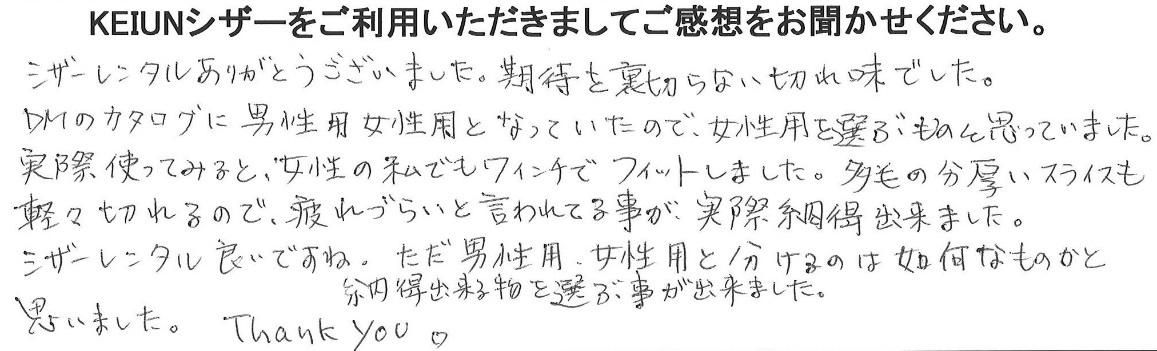 KEIUNシザーをご利用いただきましてご感想をお聞かせください。
シザーレンタルありがとうございました。期待を裏切らない切れ味でした。
DMのカタログに男性用女性用となっていたので、女性用を選ぶものと思っていました。
実際使ってみると、女性の私でも7インチでフィットしました。多毛の分厚いスライスも
軽々切れるので、疲れづらいと言われてる事が、実際納得出来ました。
シザーレンタル良いですね。ただ男性用、女性用と分けるのは如何なものかと
納得出来る物を選ぶ事が出来ました。
思いました。 Thank you